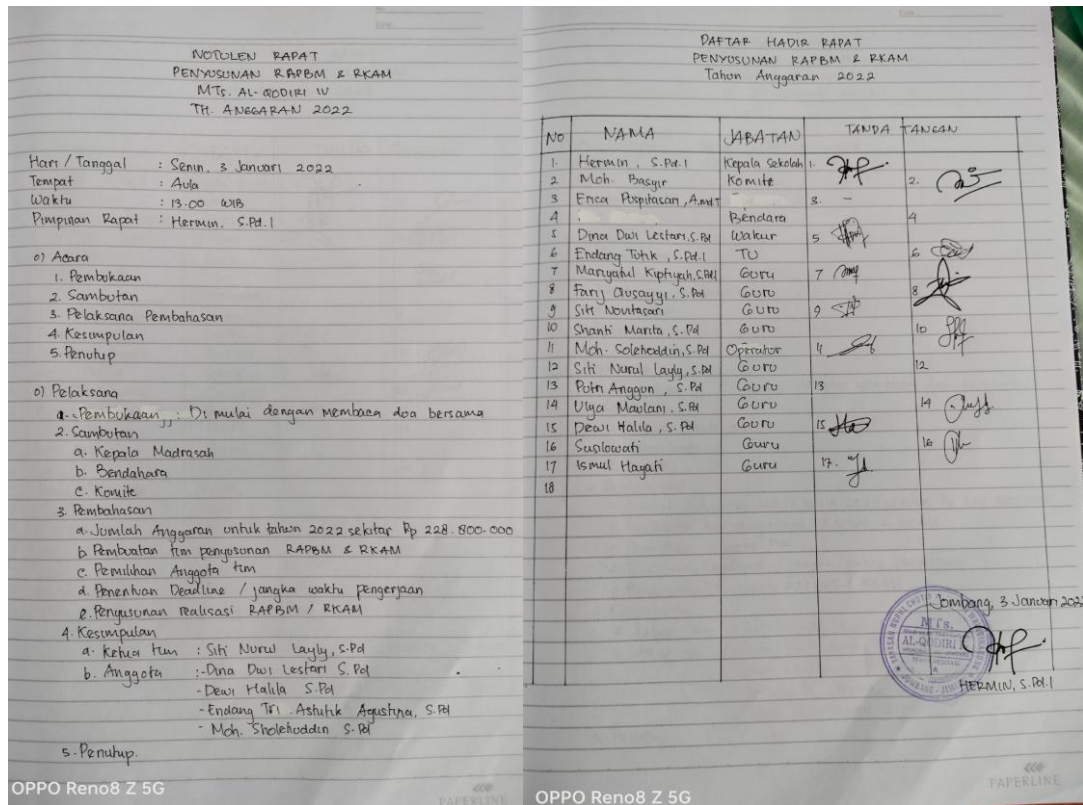 NOTULEN RAPAT
PENYUSUNAN RAPBM & RKAM
MTs. AL-QODIRI IV
TH. ANGGARAN 2022
Hari / Tanggal : Senin, 3 Januari 2022
Tempat : Aula
Waktu : 13.00 WIB
Pimpinan Rapat : Hermin, S.Pd.I
o) Acara
1. Pembukaan
2. Sambutan
3. Pelaksana Pembahasan
4. Kesimpulan
5. Penutup
o) Pelaksana
a. Pembukaan : Di mulai dengan membaca doa bersama
2. Sambutan
a. Kepala Madrasah
b. Bendahara
c. Komite
3. Pembahasan
a. Jumlah Anggaran untuk tahun 2022 sekitar Rp 228.800.000
b. Pembuatan tim penyusunan RAPBM & RKAM
c. Pemilihan Anggota tim
d. Penentuan Deadline / jangka waktu pengerjaan
e. Penyusunan realisasi RAPBM / RKAM
4. Kesimpulan
a. Ketua tim : Siti Nurul Layly, S.Pd
b. Anggota : - Dina Dwi Lestari S.Pd
- Dewi Halila S.Pd
- Endang Tri Astutik Agustina, S.Pd
- Moh. Sholehuddin S.Pd
5. Penutup.
OPPO Reno8 Z 5G
PAPERLINE
DAFTAR HADIR RAPAT
PENYUSUNAN RAPBM & RKAM
Tahun Anggaran 2022
NO NAMA JABATAN TANDA TANGAN
1. Hermin, S.Pd.I Kepala Sekolah 1.
2 Moh. Basyir Komite 2.
3 Erica Puspitasari, A.md.T 3. -
4 Bendara 4
5 Dina Dwi Lestari, S.Pd Wakur 5
6 Endang Totik, S.Pd.I TU 6
7 Mariyatul Kiptiyah, S.Pd.I Guru 7
8 Farij Qusayyi, S.Pd Guru 8
9 Siti Novitasari Guru 9
10 Shanti Marita, S.Pd Guru 10
11 Moh. Soleheddin, S.Pd Operator 11
12 Siti Nurul Layly, S.Pd Guru 12
13 Putri Anggun, S.Pd Guru 13
14 Ulya Maulani. S.Pd Guru 14
15 Dewi Halila, S.Pd Guru 15
16 Susilowati Guru 16
17 Ismul Hayati Guru 17.
18
Jombang, 3 Januari 2022
MTs.
AL-QODIRI
HERMIN, S.Pd.I
PAPERLINE
OPPO Reno8 Z 5G